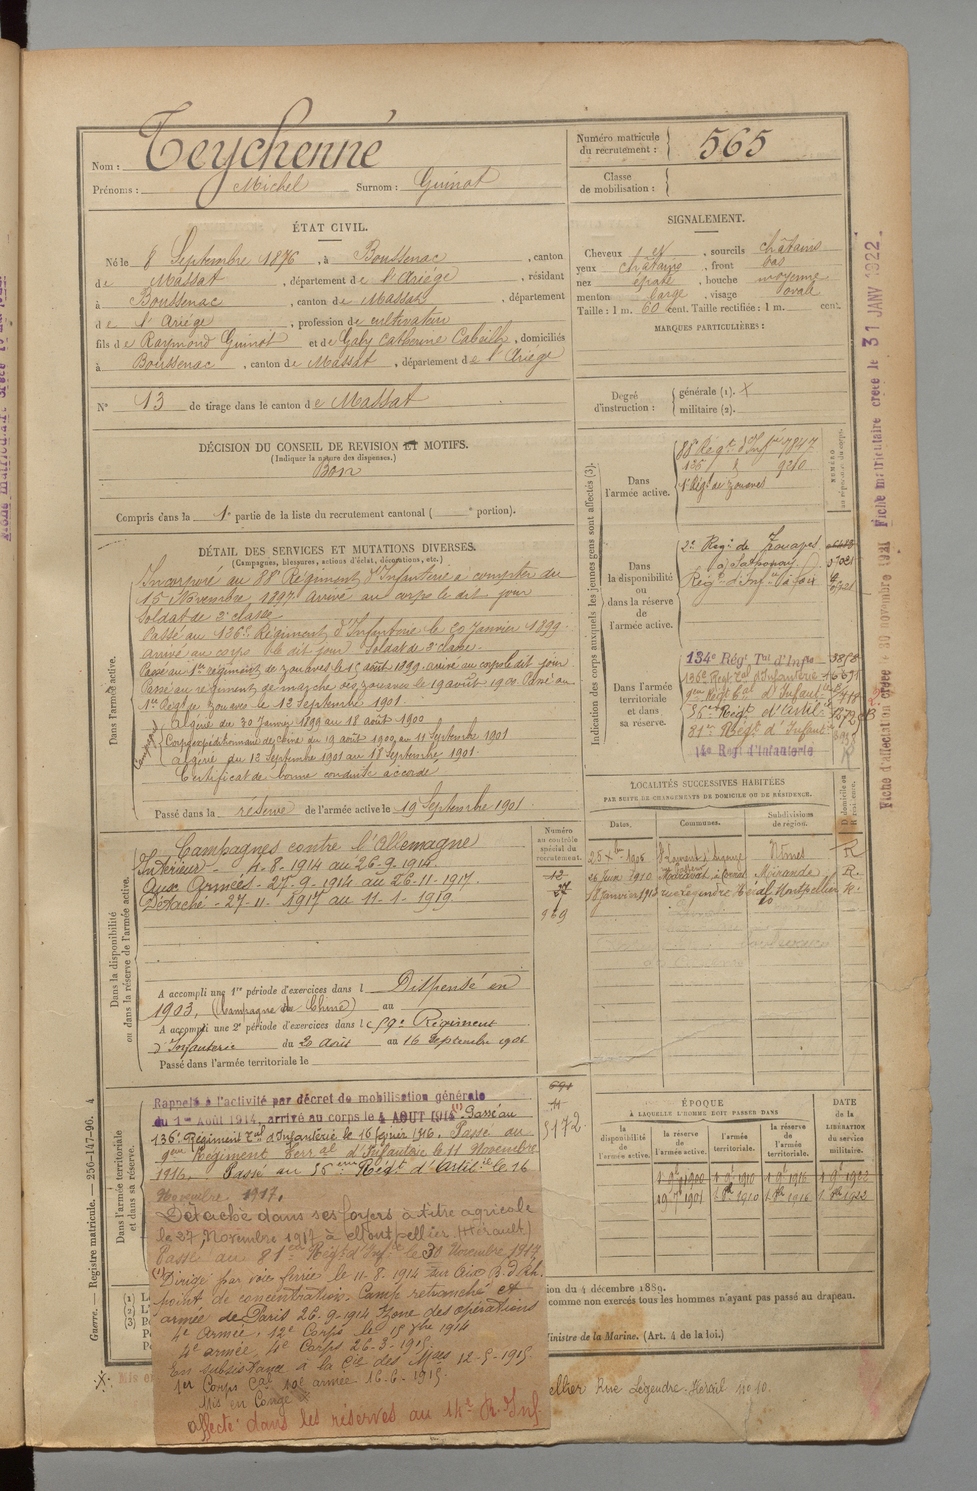 Nom : Teychenné
Prénoms : Michel Surnom : Guinot
Numéro matricule du recrutement : 565
Classe de mobilisation :
ÉTAT CIVIL.
Né le 8 Septembre 1876, à Boussenac, canton
de Massat, département de l'Ariège, résidant
à Boussenac, canton de Massat, département
de l'Ariège, profession de cultivateur
fils de Raymond Guinot et de Gaby Catherine Cabeilh, domiciliés
à Boussenac, canton de Massat, département de l'Ariège
N° 13 de tirage dans le canton de Massat
SIGNALEMENT.
Cheveux , sourcils châtains
yeux châtains, front bas
nez épaté, bouche moyenne
menton large, visage oval
Taille : 1 m. 60 cent. Taille rectifiée : 1 m. cent.
MARQUES PARTICULIÈRES :
Degré d'instruction : générale (1). X
militaire (2).
DÉCISION DU CONSEIL DE REVISION ET MOTIFS.
(Indiquer la nature des dispenses.)
Bon
Compris dans la 1e partie de la liste du recrutement cantonal ( e portion).
DÉTAIL DES SERVICES ET MUTATIONS DIVERSES.
(Campagnes, blessures, actions d'éclat, décorations, etc.)
Dans l'armée active.
Incorporé au 88e Régiment d'Infanterie à compter du
15 Novembre 1897. Arrivé au corps le dit jour
Soldat de 2e classe
Passé au 136e Régiment d'Infanterie le 20 Janvier 1899.
arrivé au corps le dit jour Soldat de 2e classe.
Passé au 1er régiment de zouaves le 18 août 1899. arrivé au corps le dit jour
Passé au régiment de marche des zouaves le 19 août 1900 Passé au
1er Régt de zouaves le 12 Septembre 1901.
Algérie du 20 Janvier 1899 au 18 août 1900
Corps expéditionnaire de Chine du 19 août 1900 au 11 Septembre 1901
Algérie du 12 Septembre 1901 au 18 Septembre 1901.
Certificat de bonne conduite accordé
Passé dans la réserve de l'armée active le 19 Septembre 1901
Indication des corps auxquels les jeunes gens sont affectés (3).
Dans l'armée active.
88e Régt d'Infie 7847
136 9210
1er Régt de zouaves
Dans la disponibilité ou dans la réserve de l'armée active.
2e Régt de Zouaves
(à Sathonay)
Régt d'Inf de Foix
Dans l'armée territoriale et dans sa réserve.
134e Régt Tal d'Infie
136e Régt Tal d'Infanterie
9me Régt Tal d'Infanterie
56me Régt d'Artil
81me Régt d'Infant
14e Regt d'Infanterie
LOCALITÉS SUCCESSIVES HABITÉES
PAR SUITE DE CHANGEMENTS DE DOMICILE OU DE RÉSIDENCE.
Dates. Communes. Subdivisions de région. D. domicile ou R. résidence.
Nîmes R
26 Juin 1910 Mirande R.
18 Janvier 1913 rue Legendre Hérail 10 Montpellier R.
Dans la disponibilité ou dans la réserve de l'armée active.
Campagnes contre l'Allemagne
Intérieur - 4-8-1914 au 26-9-1914.
Aux Armées - 27-9-1914 au 26-11-1917.
Détaché - 27-11-1917 au 11-1-1919
Numéro au contrôle spécial du recrutement.
12
27
969
A accompli une 1re période d'exercices dans l Dispensé en
1903, (Campagne de Chine) au
A accompli une 2e période d'exercices dans le 59e Régiment
d'Infanterie du 20 Août au 16 Septembre 1906
Passé dans l'armée territoriale le
Dans l'armée territoriale et dans sa réserve.
Rappelé à l'activité par décret de mobilisation générale
du 1er Août 1914, arrivé au corps le 4 AOUT 1914 (1). Passé au
136e Régiment Tal d'Infanterie le 16 février 1916. Passé au
9me Régiment Terral d'Infanterie le 11 Novembre
1916. Passé au 56me Régt d'Artilie le 16
Novembre 1917.
Détaché dans ses foyers à titre agricole
le 27 Novembre 1917 à Montpellier (Hérault)
Passé au 81me Régt d'Infie le 30 Novembre 1917
(1) Dirigé par voie ferrée le 11-8-1914 sur Aix B. d Rh.
point de concentration. Camp retranché et
armée de Paris 26-9-1914 Zone des opérations
4e Armée, 12e Corps le 15 9bre 1914
4e armée, 4e Corps 26-3-1915
En subsistance à la Cie des Mses 12-5-1915
1er Corps Cal 10e armée 16-6-1915.
Mis en Congé
affecté dans les réserves au 14e R. Inf
691
11
5172
ÉPOQUE
À LAQUELLE L'HOMME DOIT PASSER DANS
la disponibilité de l'armée active. la réserve de l'armée active. l'armée territoriale. la réserve de l'armée territoriale.
DATE de la LIBÉRATION du service militaire.
1 9e 1900 1 9e 1910 1 9e 1916 1 9e 1922
19 7e 1901 1 8bre 1910 1 8bre 1916 1 8bre 1922
ion du 4 décembre 1889.
comme non exercés tous les hommes n'ayant pas passé au drapeau.
Ministre de la Marine. (Art. 4 de la loi.)
ellier Rue Legendre-Hérail no 10.
Guerre. — Registre matricule. — 256-147-96. 4
Fiche d'affectation créée 30 novembre 1921 Fiche matriculaire créée le 31 JANV 1922.